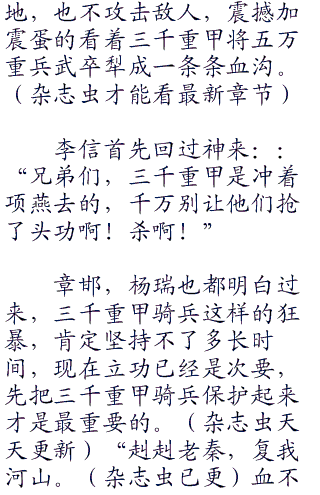 地，也不攻击敌人，震撼加
震蛋的看着三千重甲将五万
重兵武卒犁成一条条血沟。
（杂志虫才能看最新章节）
李信首先回过神来：：
“兄弟们，三千重甲是冲着
项燕去的，千万别让他们抢
了头功啊！杀啊！”
章邯，杨瑞也都明白过
来，三千重甲骑兵这样的狂
暴，肯定坚持不了多长时
间，现在立功已经是次要，
先把三千重甲骑兵保护起来
才是最重要的。（杂志虫天
天更新）“赳赳老秦，复我
河山。（杂志虫已更）血不